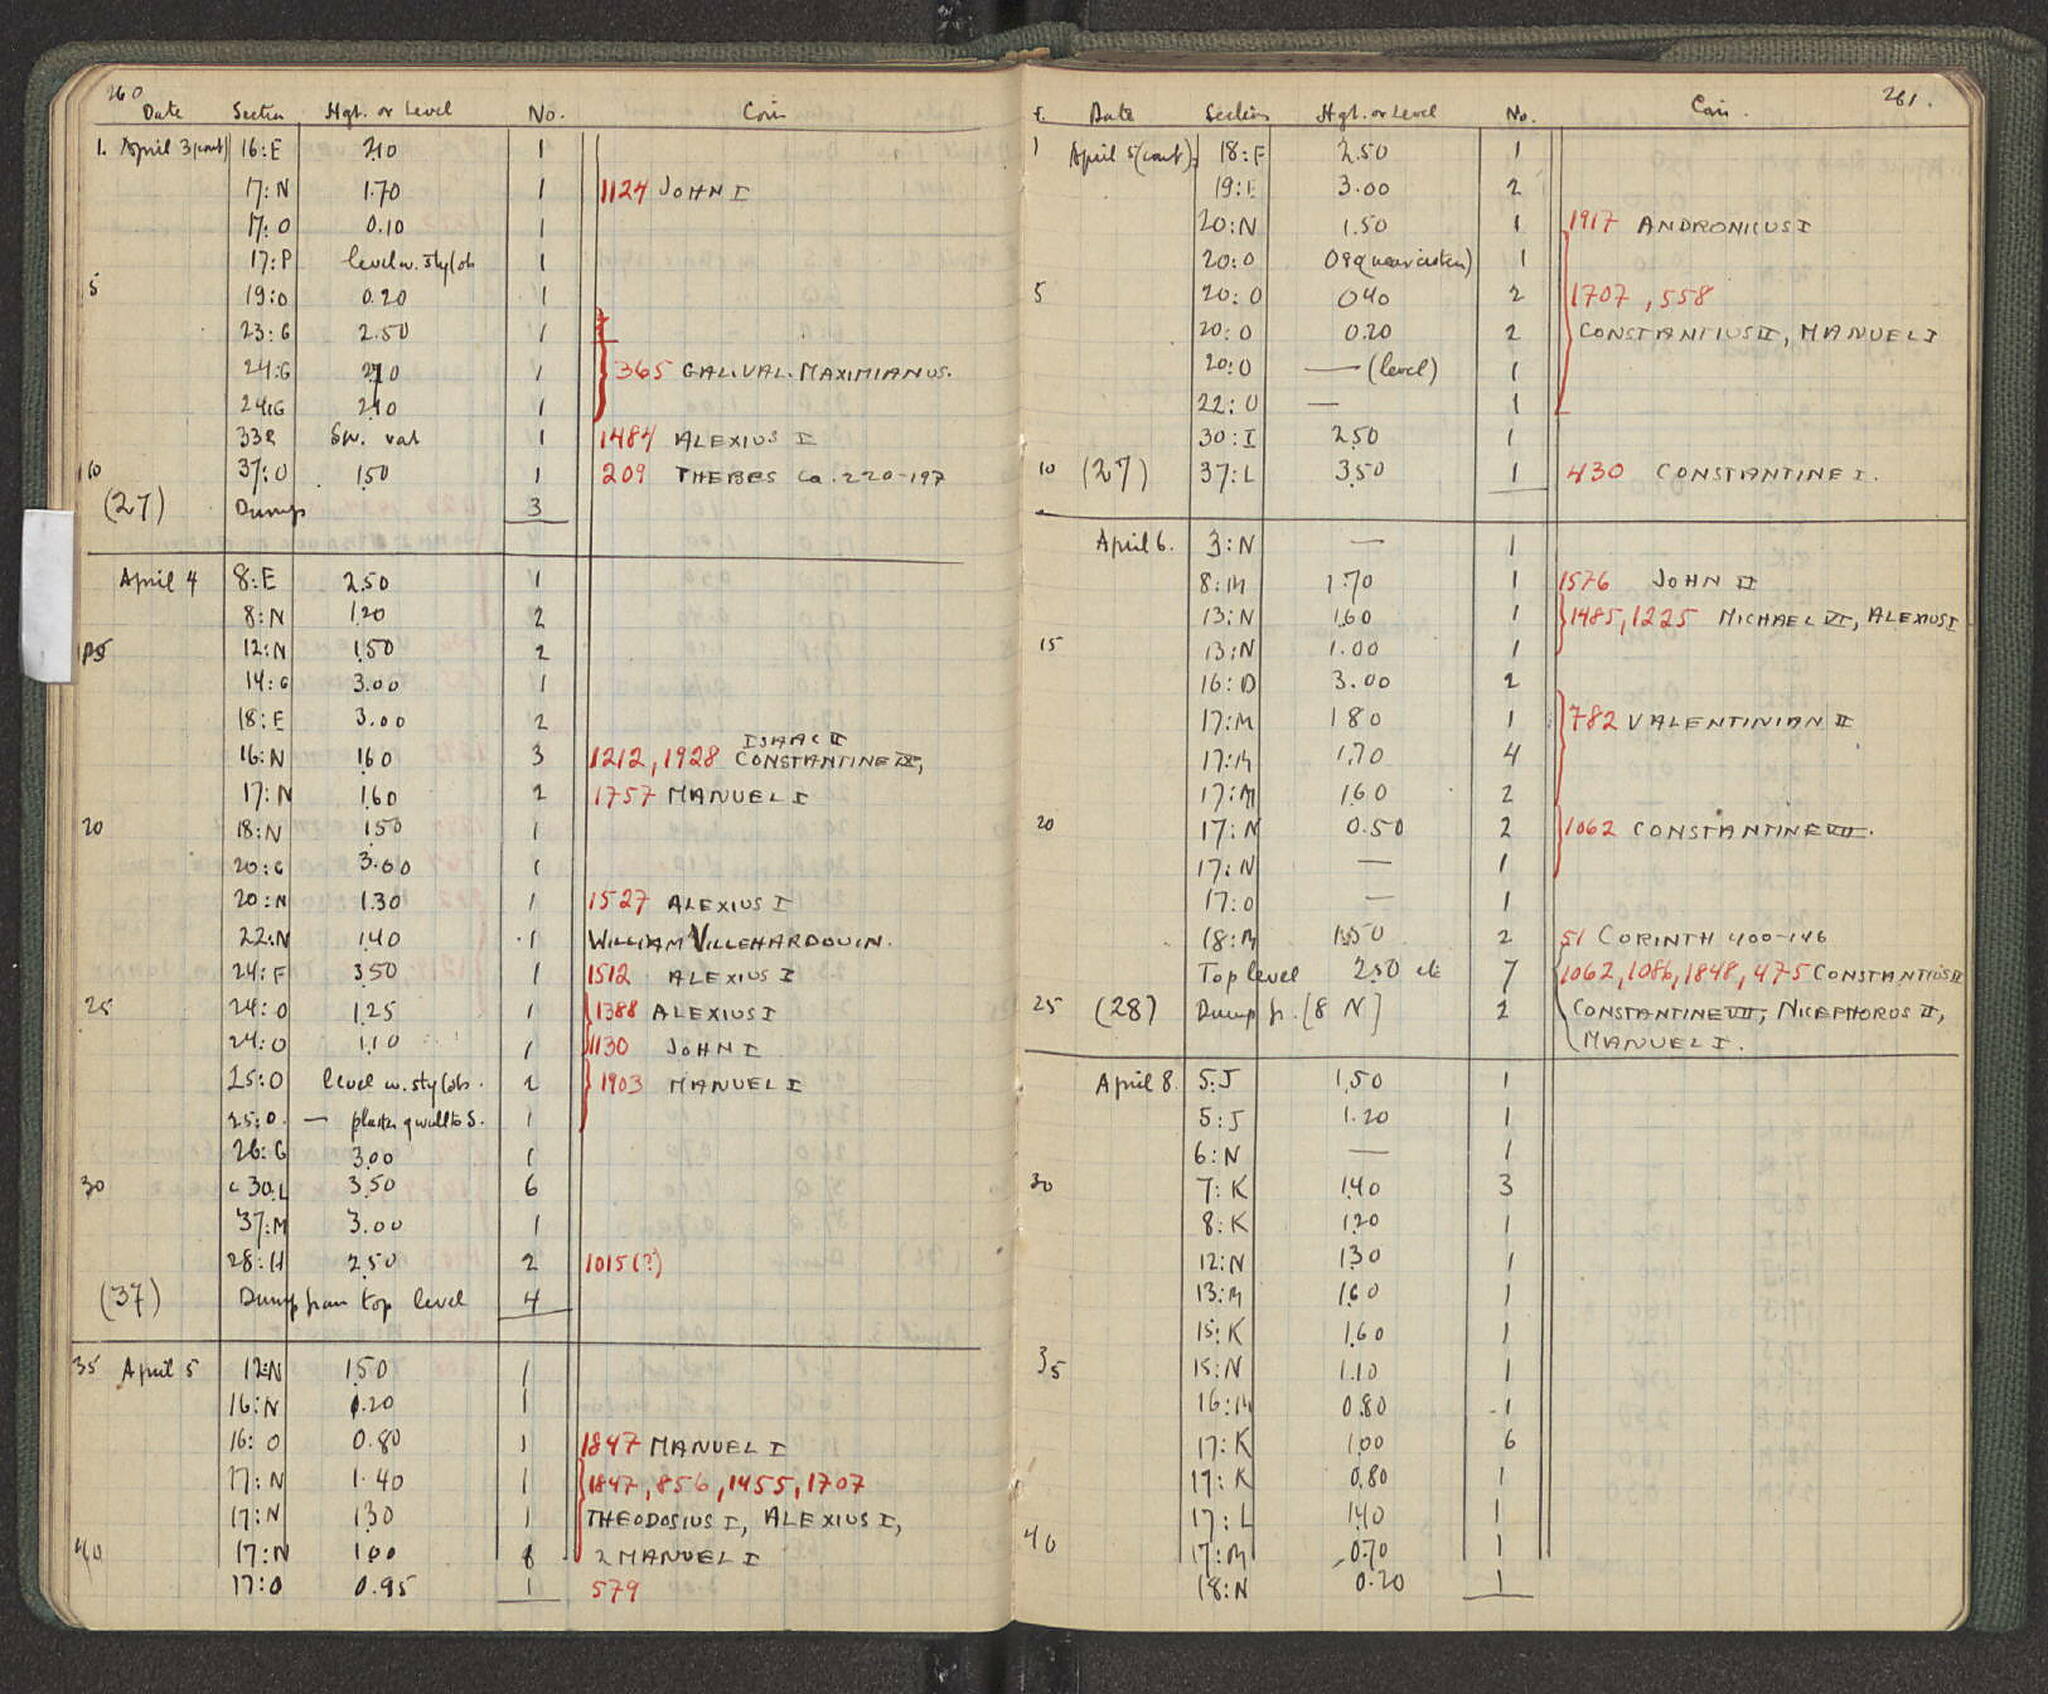 260
Date Section Hgt. or Level No. Coin
1. April 3 (cont) 16:E 2.10 1
17:N 1.70 1 1124 JOHN I
17:O 0.10 1
17:P level w. stylob 1
5 19:O 0.20 1
23:G 2.50 1
24:G 2.10 1 365 GAL. VAL. MAXIMIANUS.
24:G 2.10 1
33R Sw. vat 1 1484 ALEXIUS I
10 37:O 1.50 1 209 THEBES ca. 220-197
(27) Dump 3
April 4 8:E 2.50 1
8:N 1.20 2
15 12:N 1.50 2
14:G 3.00 1
18:E 3.00 2
ISAAC II
16:N 1.60 3 1212, 1928 CONSTANTINE IX,
17:N 1.60 2 1757 MANUEL I
20 18:N 1.50 1
20:G 3.00 1
20:N 1.30 1 1527 ALEXIUS I
22:N 1.40 1 WILLIAM VILLEHARDOUIN.
24:F 3.50 1 1512 ALEXIUS I
25 24:O 1.25 1 1388 ALEXIUS I
24:O 1.10 1 1130 JOHN I
25:O level w. stylob. 2 1903 MANUEL I
25:O. — plaster q wall to S. 1
26:G 3.00 1
30 c 30:L 3.50 6
37:M 3.00 1
28:H 2.50 2 1015(?)
(37) Dump from top level 4
35 April 5 12:N 1.50 1
16:N 1.20 1
16:O 0.80 1 1847 MANUEL I
17:N 1.40 1 1847, 856, 1455, 1707
17:N 1.30 1 THEODOSIUS I, ALEXIUS I,
40 17:N 1.00 8 2 MANUEL I
17:O 0.95 1 579
261.
Date Section Hgt. or Level No. Coin.
1 April 5 (cont). 18:F 2.50 1
19:E 3.00 2
20:N 1.50 1 1917 ANDRONICUS I
20:O (near cistern) 1
5 20:O 0.40 2 1707, 558
20:O 0.20 2 CONSTANTIUS II, MANUEL I
20:O — (level) 1
22:O — 1
30:I 2.50 1
10 (27) 37:L 3.50 1 430 CONSTANTINE I.
April 6. 3:N — 1
8:M 1.70 1 1576 JOHN II
13:N 1.60 1 1485, 1225 MICHAEL VI, ALEXIUS I
15 13:N 1.00 1
16:D 3.00 2
17:M 1.80 1 782 VALENTINIAN II
17:M 1.70 4
17:M 1.60 2
20 17:N 0.50 2 1062 CONSTANTINE VII.
17:N — 1
17:O — 1
18:M 1.50 2 51 CORINTH 400-146
Top level 2.50 etc 7 1062, 1086, 1848, 475 CONSTANTIUS II
25 (28) Dump fr. [8 N] 2 CONSTANTINE VII, NICEPHOROS II,
MANUEL I.
April 8. 5:J 1.50 1
5:J 1.20 1
6:N — 1
30 7:K 1.40 3
8:K 1.20 1
12:N 1.30 1
13:M 1.60 1
15:K 1.60 1
35 15:N 1.10 1
16:M 0.80 1
17:K 1.00 6
17:K 0.80 1
17:L 1.40 1
40 17:M 0.70 1
18:N 0.20 1